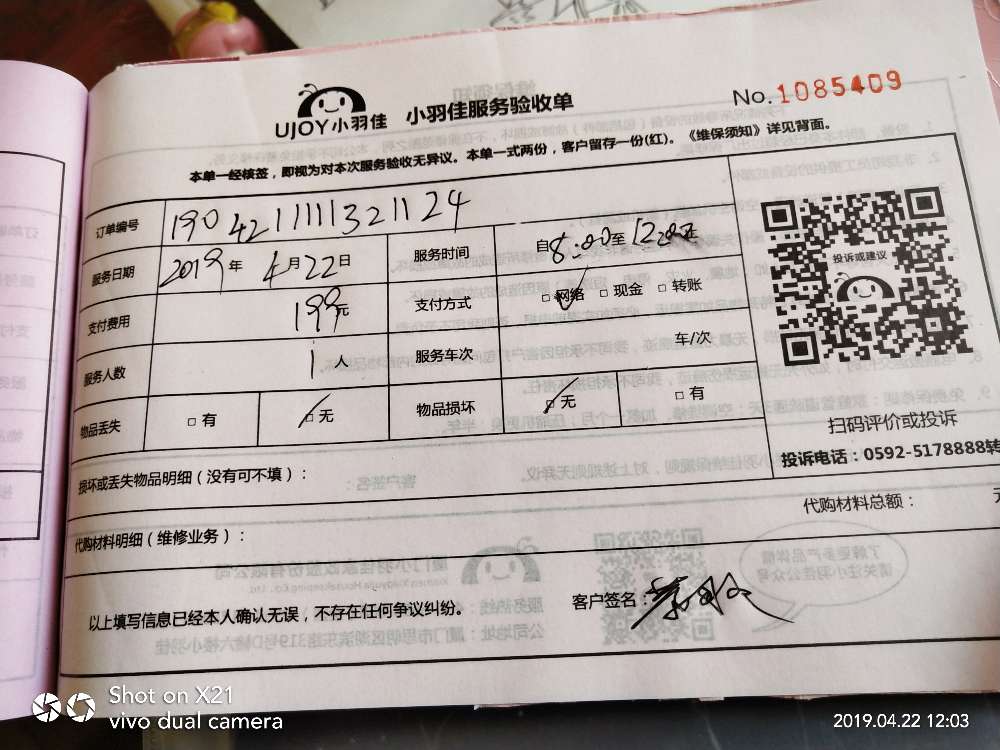 UJOY小羽佳 小羽佳服务验收单 No.1085409
本单一经核签，即视为对本次服务验收无异议。本单一式两份，客户留存一份(红)。《维保须知》详见背面。
订单编号 1904211111321124
服务日期 2019年4月22日 服务时间 自8:00至12:00
支付费用 199元 支付方式 □网络 □现金 □转账
服务人数 1人 服务车次 车/次
物品丢失 □有 □无 物品损坏 □无 □有
投诉或建议
扫码评价或投诉
投诉电话：0592-5178888转
损坏或丢失物品明细（没有可不填）：
代购材料明细（维修业务）： 代购材料总额：
以上填写信息已经本人确认无误，不存在任何争议纠纷。 客户签名
Shot on X21
vivo dual camera
2019.04.22 12:03